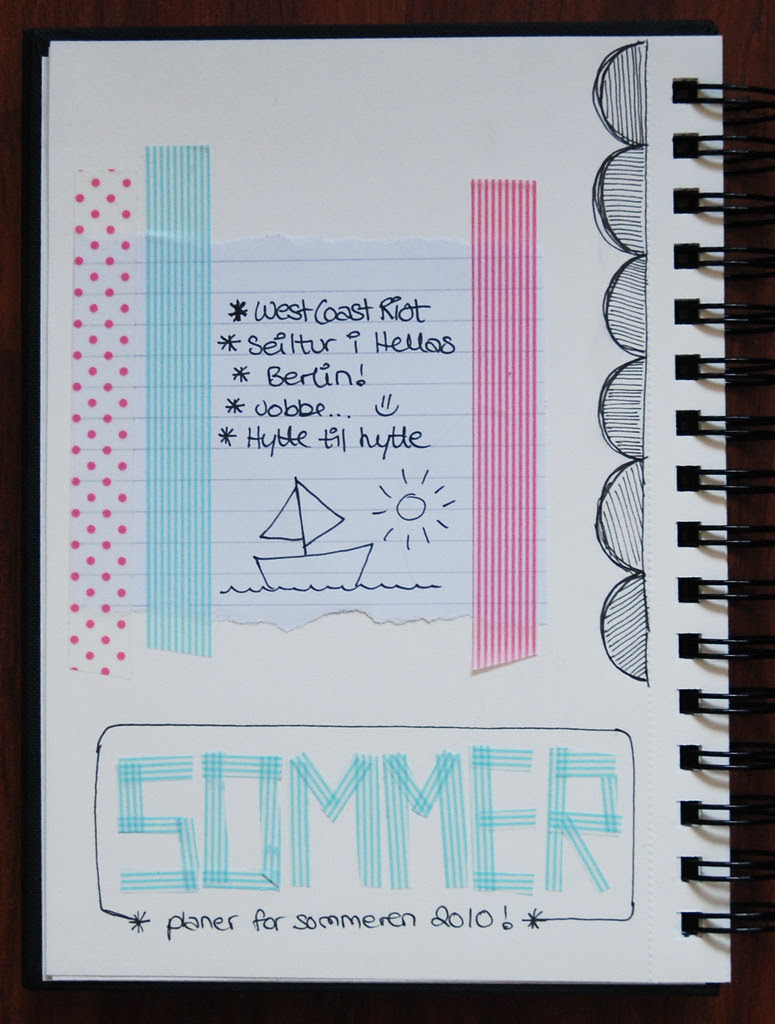 * West Coast Riot
* Seiltur i Hellas
* Berlin!
* Jobbe... =)
* Hytte til hytte
SOMMER
* planer for sommeren 2010! *